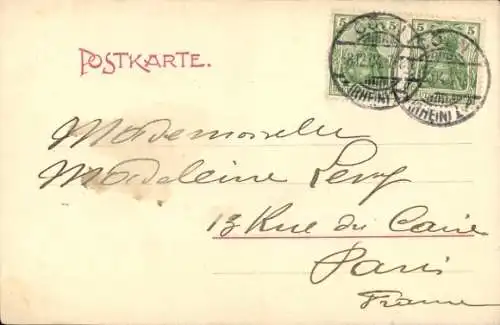 POSTKARTE.
5 5 5 5
CÖLN
(RHEIN) 1
CÖLN
(RHEIN) 1
Mademoiselle
Madeleine Levy
13 Rue du Caire
Paris
France